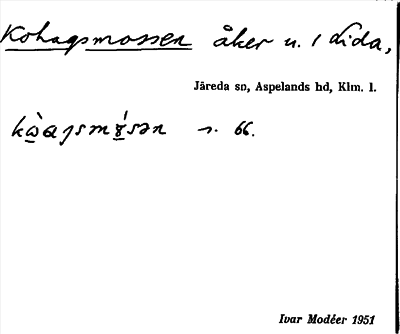 Kohagsmossen åker n. 1 Lida,
Järeda sn, Aspelands hd, Klm. l.
s. 66.
Ivar Modéer 1951